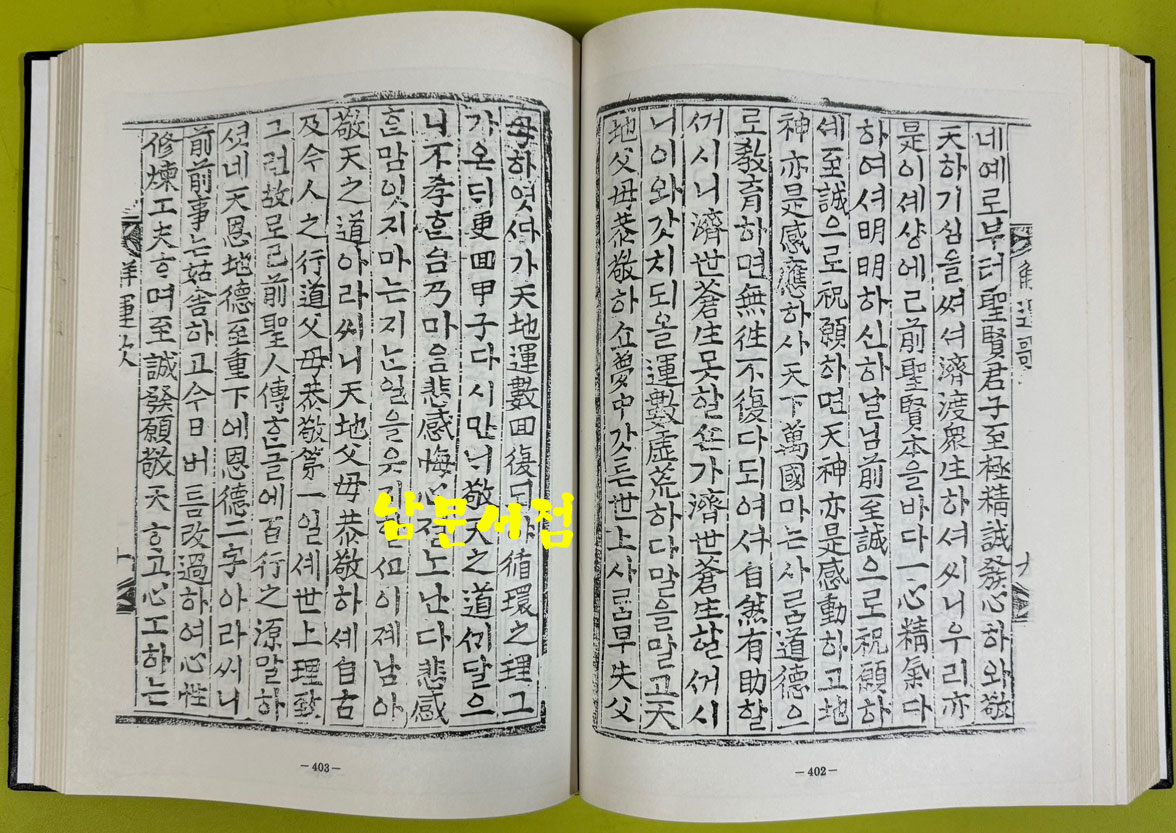 네예로부터聖賢君子至極精誠發心하와敬
天하기심을써셔濟渡衆生하셔씨니우리亦
是이셰샹에已前聖賢本을바다一心精氣다
하여셔明明하신하날님前至誠으로祝願하
셰至誠으로祝願하면天神亦是感動하고地
神亦是感應하사天下萬國마는사람道德으
로敎育하면無往不復다되여셔自然有助할
꺼시니濟世蒼生못할손가濟世蒼生할꺼시
니이와갓치되올運數虛荒하다말을말고天
地父母恭敬하쇼夢中갓든世上사람早失父
解運歌
九
母하엿다가天地運數回復
循環之理그
가온디更回甲子다시만너敬天之道끼달으
니不孝흔
마음悲感悔心졀노난다悲感
흔맘잇지마는지는일을웃지할
이졔남아
敬天之道아라씨니天地父母恭敬하셰自古
及今人之行道父母恭敬第一일셰世上理致
그러故로已前聖人傳흔글에百行之源말하
셧네天恩地德至重下에恩德二字아라씨니
前前事는姑舍하고今日버틈改過하여心性
修煉工夫하며至誠發願敬天하고心工하는
解運歌
十
남문서점
-403-
-402-